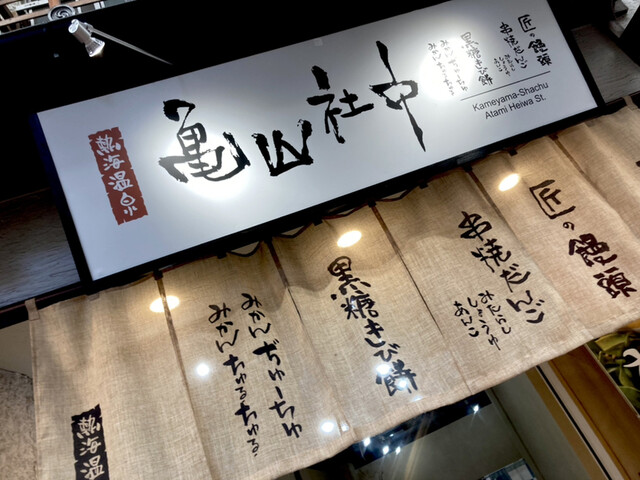 熱海温泉
亀山社中
匠の饅頭
串焼だんご
みたらし
しょうゆ
あんこ
黒糖きび餅
みかんぢゅーちゅ
みかんちゅるちゅる
Kameyama-Shachu
Atami Heiwa St.
匠の饅頭
串焼だんご
みたらし
しょうゆ
あんこ
黒糖きび餅
みかんぢゅーちゅ
みかんちゅるちゅる
熱海温